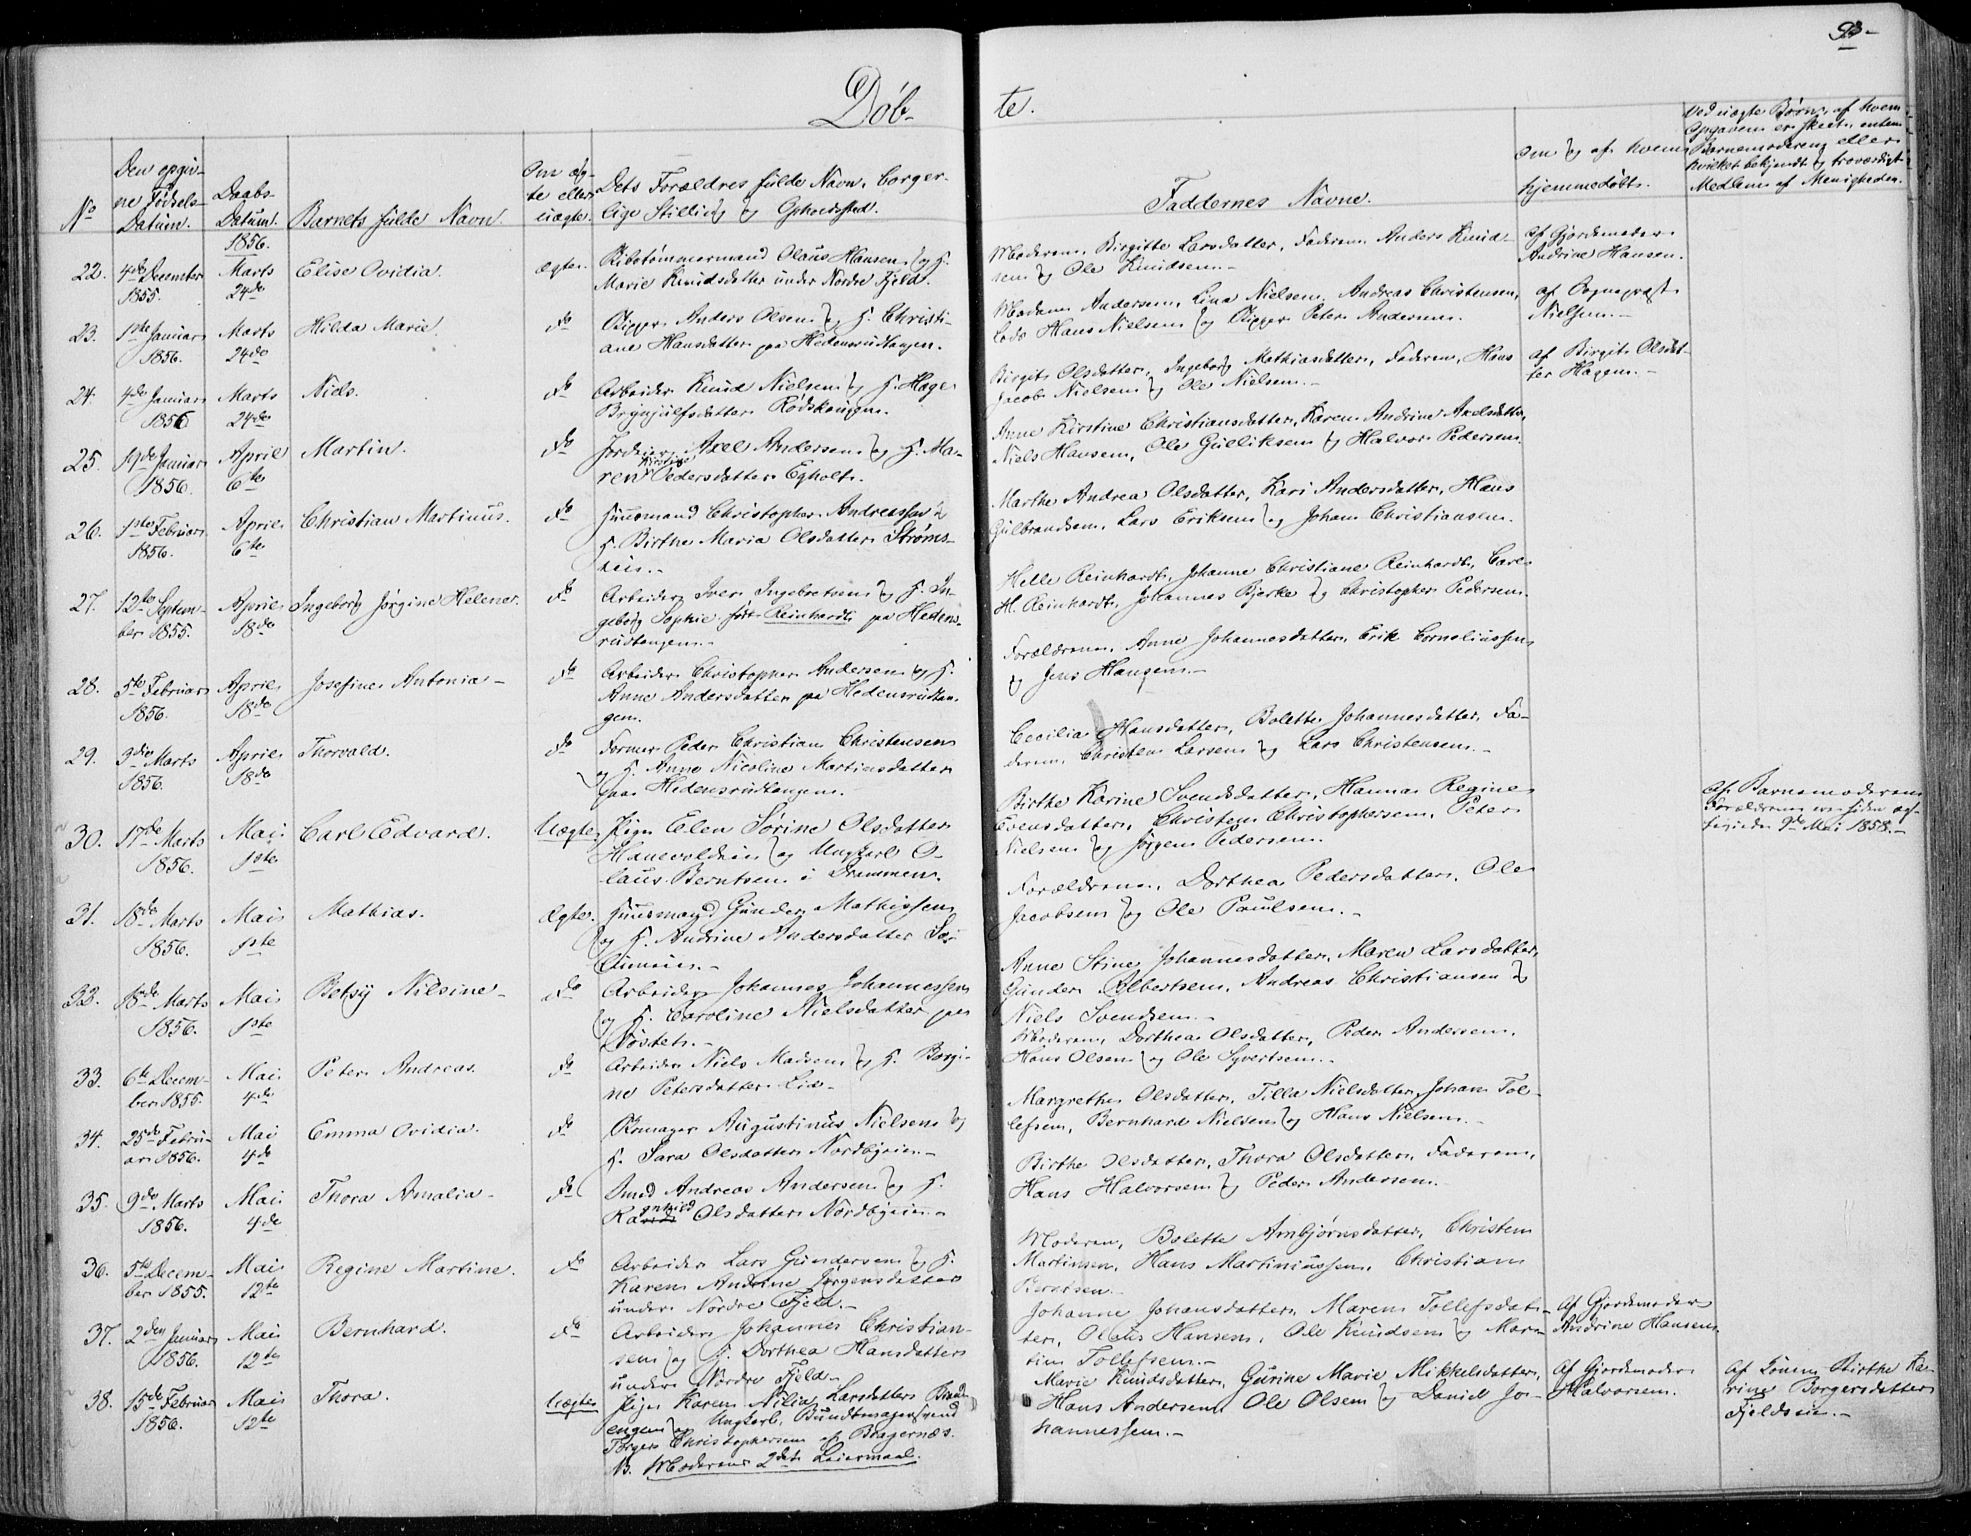 93
Døb-
te.
No
Den opgiv-
ne Fødsels-
Datum.
Daabs-
Datum.
Barnets fulde Navn.
Om æg-
te eller
uægte.
Dets Forældres fulde Navn, borger-
lige Stilling og Opholdssted.
Faddernes Navne.
Om og af hvem
hjemmedøbt.
Ved uægte Børn, af hvem
Opgaven er skeet, enten
Barnemoderen eller
hvilket bekjendt og troværdigt
Medlem af Menigheden.
1856.
22. 4de December 1855. Marts 24de Elise Ovidia. ægte.
Olaus Hansen og H.
Marie Knudsdatter under Nordre Fjeld.
Moderen, Birgitte Larsdatter, Faderen, Anders Knud-
sen og Ole Knudsen.-
af Gjordemoder
Andrine Hansen.
23. 1ste Januar 1856. Marts 24de Hilda Marie. do
Skipper Anders Olsen og H. Christi-
ane Hansdatter paa Hedensrudtangen.
Madam Andersen, Lina Nielsen, Andreas Christensen,
Lods Hans Nielsen og Skipper Peter Andersen.
af Sognepræst
Nielsen.-
24. 4de Januar 1856 Marts 24de Niels. do
Arbeider Knud Nielsen og H. Hage
Brynjulfsdatter Rødskougen.
Birgit Olsdatter, Ingeborg Mathiasdatter, Faderen, Hans
Jacob Nielsen og Ole Nielsen.-
af Birgit Olsdat-
ter Hagen.-
25. 19de Januar 1856. April 6te Martin. do
Jordeier Axel Andersen og H. Ma-
ren Kirstine Pedersdatter Egholt.
Anne Kirstine Christiansdatter, Karen Andrine Axelsdatter,
Niels Hansen, Ole Gulliksen og Halvor Pedersen.
26. 1ste Februar 1856. April 6te Christian Martinus. do
Huusmand Christopher Andreassen &
H. Birthe Maria Olsdatter Strøms-
eie.-
Marthe Andrea Olsdatter, Kari Andersdatter, Hans
Gulbrandsen, Lars Eriksen og Johan Christiansen.
27. 12te Septem-
ber 1855. April 18de Ingeborg Jørgine Helene. do
Arbeider Iver Ingebretsen og H. In-
geborg Sophie født Reinhardt paa Hedens-
rudtangen.-
Helle Reinhardt, Johanne Christiane Reinhardt, Carl
H. Reinhardt, Johannes Bjerke og Christopher Pedersen.
28. 5te Februar 1856. April 18de Josefine Antonia- do
Arbeider Christopher Andersen og H.
Anne Andersdatter paa Hedensrudtan-
gen.
Forældrene, Anne Johannesdatter, Erik Corneliussen
og Jens Hansen.-
29. 3die Marts 1856. April 18de Thorvald. do
Former Peder Christian Christensen
og H. Anne Nicoline Martinsdatter
paa Hedensrudtangen.
Cecilia Hansdatter, Bolette Johannesdatter, Fa-
deren, Christen Larsen og Lars Christensen.-
30. 17de Marts 1856. Mai 1ste Carl Edvard. Uægte
Pige Elen Sørine Olsdatter
Hanevoldeie og Ungkarl O-
laus Berntsen i Drammen.
Birthe Karine Svendsdatter, Hanna Regine
Evensdatter, Christen Christophersen, Peter
Nielsen og Jørgen Pedersen.
Af Barnemoderen
Forældrene ere siden
9de Mai 1858.-
31. 18de Marts 1856. Mai 1ste Mathias. Ægte.
Huusmand Gunder Mathissen
og H. Andrine Andersdatter
Forældrene, Dorthea Pedersdatter, Ole
Jacobsen og Ole Paulsen.-
32. 18de Marts 1856. Mai 1ste Betsy Nilsine- do
Arbeider Johannes Johannessen
og H. Caroline Nielsdatter paa
Anne Stine Johannesdatter, Maren Larsdatter,
Gunder Albertsen, Andreas Christiansen og
Niels Svendsen.-
33. 6te Decem-
ber 1855. Mai 4de Peter Andreas. do
Arbeider Niels Madsen og H. Borgi-
ne Petersdatter Lie-
Moderen, Dorthea Olsdatter, Peder Andersen,
Hans Olsen og Ole Syvertsen.-
34. 25de Febru-
ar 1856. Mai 4de Emma Ovidia. do
Skomager Augustinus Nielsen og
H. Sara Olsdatter Nordbyeie.-
Margrethe Olsdatter, Tilla Nielsdatter, Johan Tol-
lefsen, Bernhard Nielsen og Hans Nielsen.-
35. 9de Marts 1856. Mai 4de Thora Amalia- do
Smed Andreas Andersen og H.
Olsdatter Nordbyeie.-
Birthe Olsdatter, Thora Olsdatter, Faderen,
Hans Halvorsen og Peder Andersen.-
36. 5te Decem-
ber 1855. Mai 12te Regine Martine. do
Arbeider Lars Gundersen og H.
Karen Andrine Jørgensdatter
under Nordre Fjeld.-
Moderen, Bolette Arnbjørnsdatter, Christen
Martinsen, Hans Martiniussen, Christian
37. 2den Januar 1856. Mai 12te Bernhard. do
Arbeider Johannes Christian-
sen og H. Dorthea Hansdatter
under Nordre Fjeld.-
Johanne Johansdatter, Maren Tollefsdat-
ter, Olaus Hansen, Ole Knudsen og Mar-
tin Tollefsen.-
Af Gjordemoder
Andrine Hansen.
38. 15de Februar 1856. Mai 12te Thora. Uægte
Pige Karen Nilia Larsdatter
engen og Ungkarl, Bundtmagersvend
Torger Christophersen af Bragernæs.
NB. Moderens 2det Leiermaal.
Marie Knudsdatter, Gurine Marie Mikkelsdatter,
Hans Andersen, Ole Olsen og Daniel Jo-
hannessen.-
Af Gjordemoder
Halvorsen.
Af Birthe Ka-
rine Borgersdatter
Fjeldseie.-